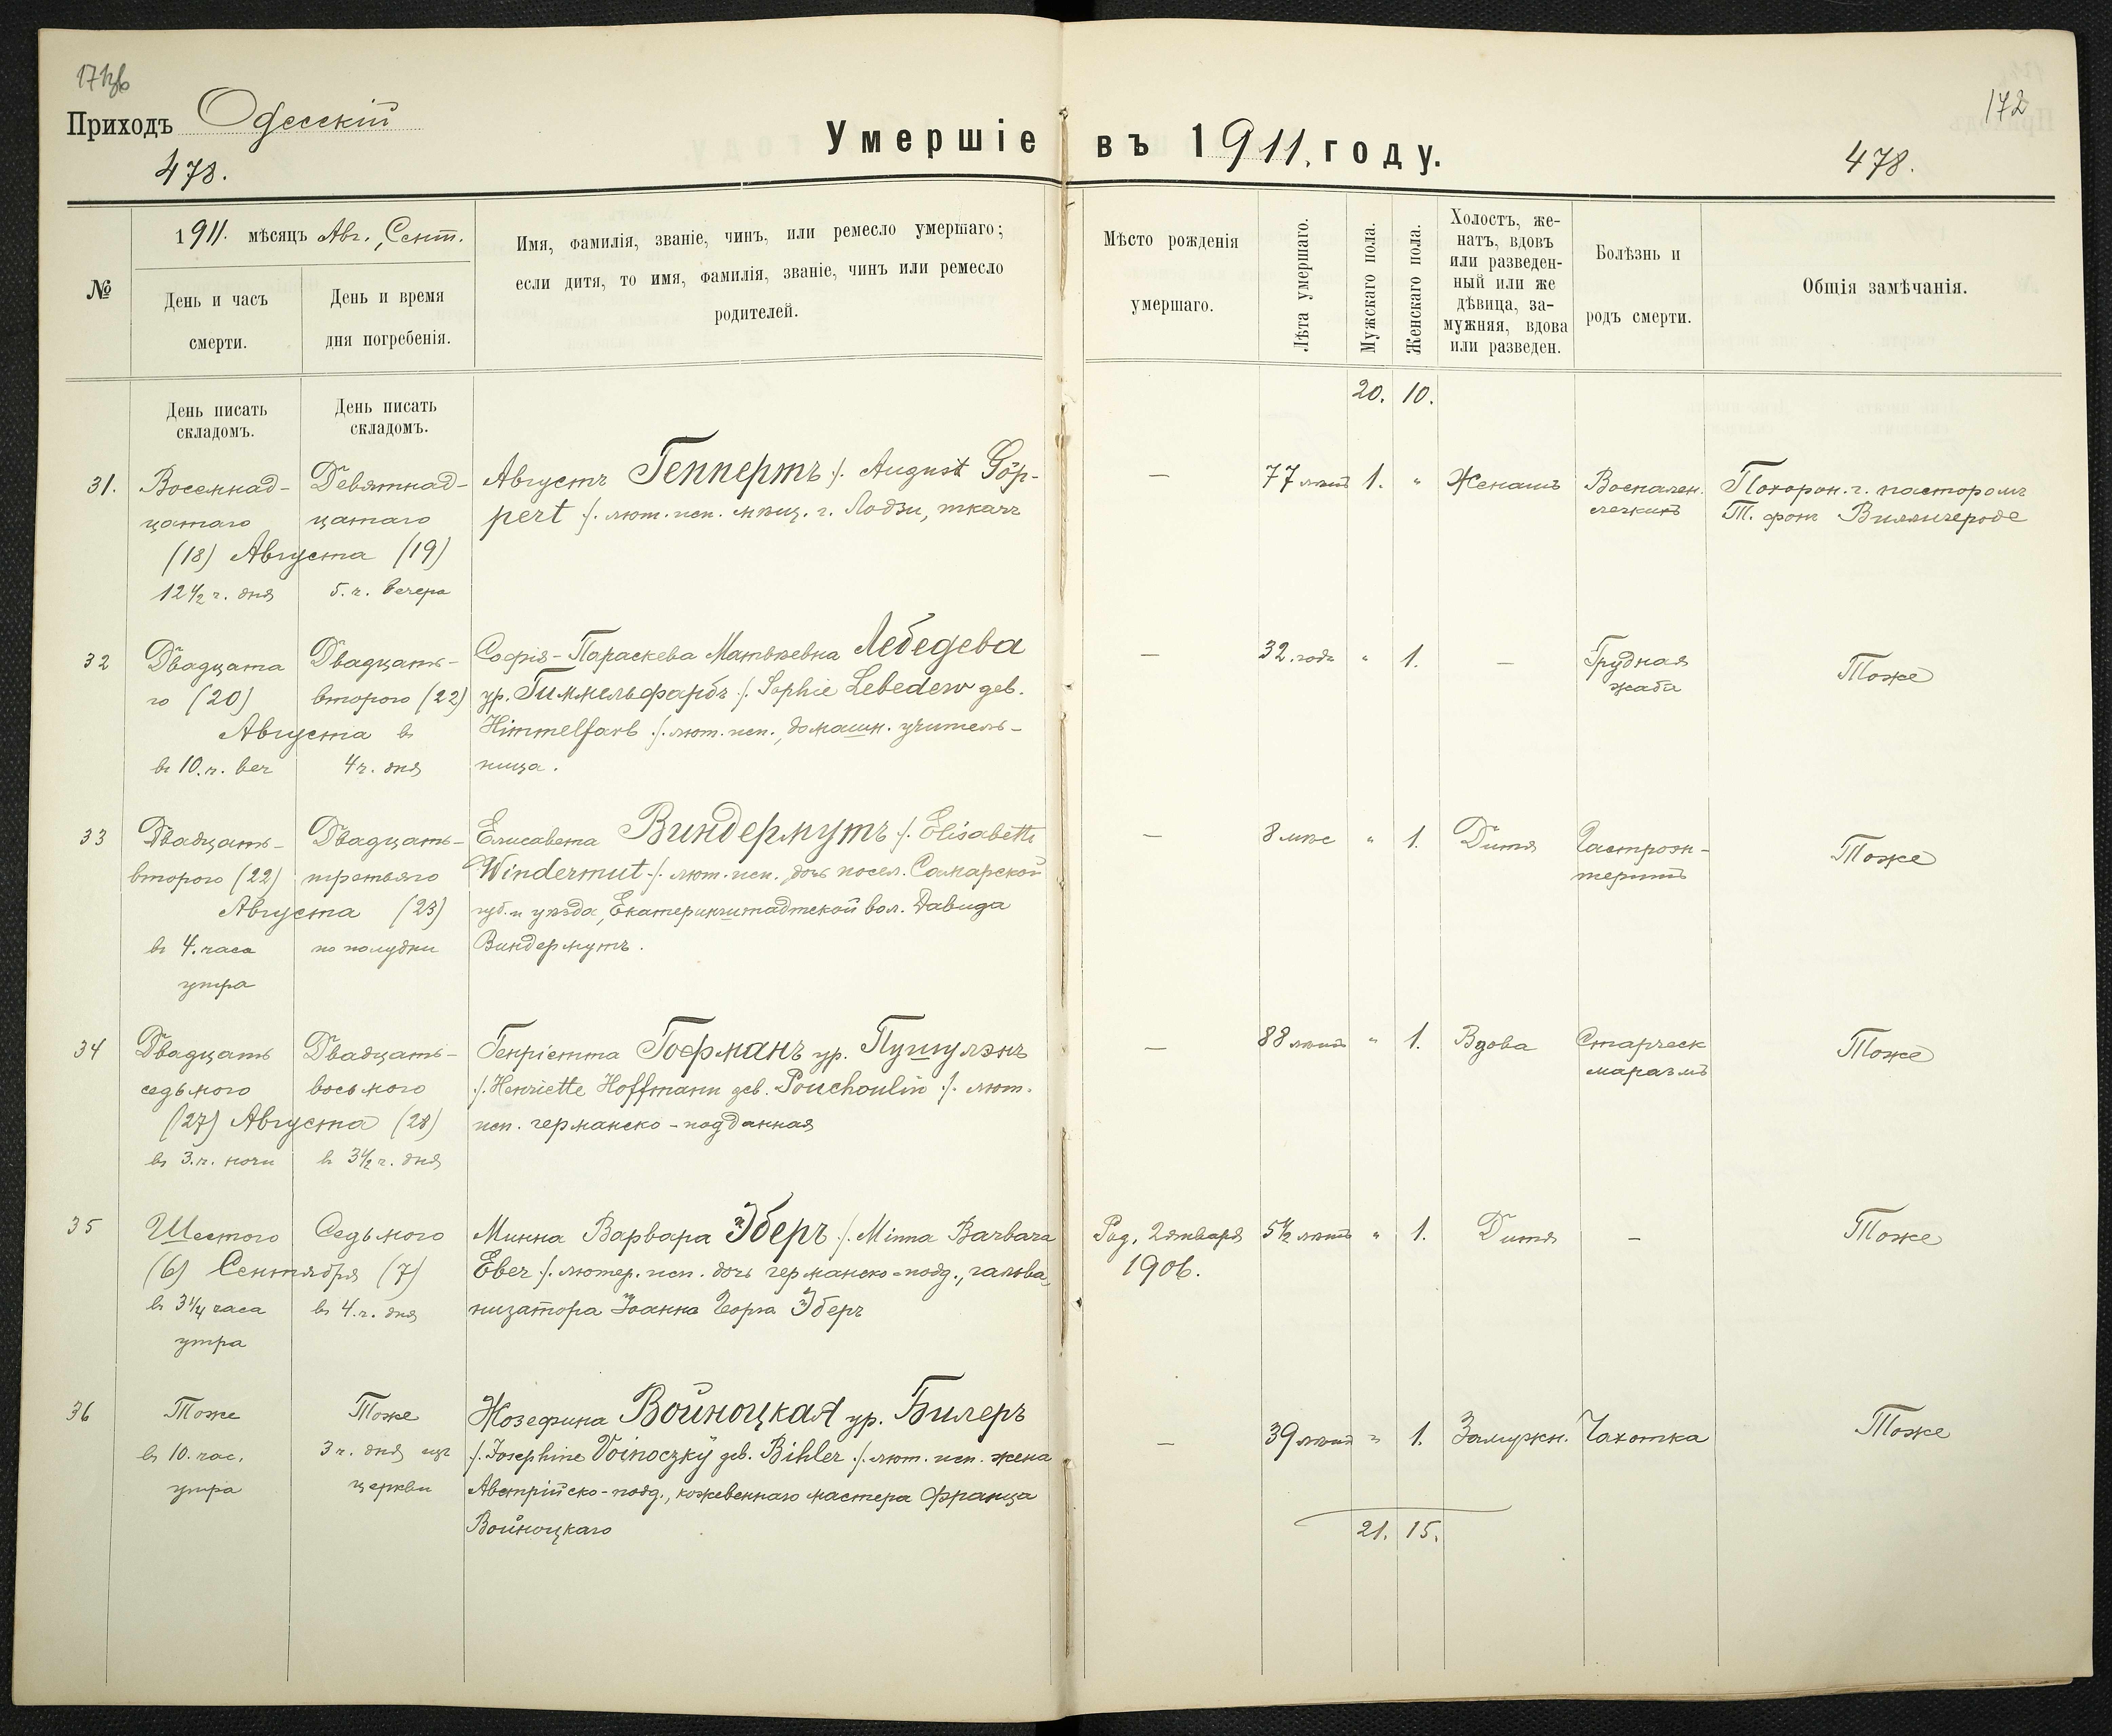 171об
Приходъ Одесскій
478.
Умершіе въ 1911. году.
172
478.
№
1911. мѣсяцъ Авг., Сент.
День и часъ
смерти.
День и время
дня погребенія.
Имя, фамилія, званіе, чинъ, или ремесло умершаго;
если дитя, то имя, фамилія, званіе, чинъ или ремесло
родителей.
Мѣсто рожденія
умершаго.
Лѣта умершаго.
Мужскаго пола.
Женскаго пола.
Холостъ, же-
натъ, вдовъ
или разведен-
ный или же
дѣвица, за-
мужняя, вдова
или разведен.
Болѣзнь и
родъ смерти.
Общія замѣчанія.
День писать
складомъ.
День писать
складомъ.
20. 10.
31.
Восемнад-
цатаго
(18) Августа (19)
12½ ч. дня
Девятнад-
цатаго
5. ч. вечера
Августъ Геппертъ ./. August Göp-
pert ./. лют. исп. мѣщ. г. Лодзи, ткачъ
—
77 лѣтъ 1. "
Женатъ
Воспален.
легкихъ
Похорон. г. пасторомъ
Т. фонъ Виллигероде
32
Двадцата
го (20)
Августа въ
въ 10. ч. веч
Двадцать-
второго (22)
4 ч. дня
Софія-Параскева Матвѣевна Лебедева
ур. Гиммельфарбъ ./. Sophie Lebedew geb.
Himmelfarb ./. лют. исп., домашн. учитель-
ница.
—
32. года " 1.
—
Грудная
жаба
Тоже
33
Двадцать-
второго (22)
Августа (23)
въ 4. часа
утра
Двадцать-
третьяго
по полудни
Елисавета Виндермутъ ./. Elisabeth
Windermut ./. лют. исп., дочь посел. Самарской
губ. и уѣзда, Екатериненштадтской вол. Давида
Виндермутъ.
—
8 мѣс " 1.
Дитя
Гастроэн-
теритъ
Тоже
34
Двадцать
седьмого
(27) Августа (28)
въ 3. ч. ночи
Двадцать-
восьмого
в 3½ ч. дня
Генріетта Гофманъ ур. Пушулэнъ
./. Henriette Hoffmann geb. Pouchoulin ./. лют.
исп. германско-подданная
—
88 лѣтъ " 1.
Вдова
Старческ
маразмъ
Тоже
35
Шестого
(6) Сентября (7)
въ 3¼ часа
утра
Седьмого
въ 4. ч. дня
Минна Варвара Эберъ ./. Minna Barbara
Eber ./. лютер. исп. дочь германско-подд., гальва-
низатора Іоанна Георга Эберъ
Род. 2 января
1906.
5½ лѣтъ " 1.
Дитя
—
Тоже
36
Тоже
въ 10. час.
утра
Тоже
3 ч. дня изъ
церкви
Жозефина Войноцкая ур. Билеръ
./. Josephine Voinoczky geb. Bihler ./. лют. исп. жена
Австрійско-подд., кожевеннаго мастера Франца
Войноцкаго
—
39 лѣтъ " 1.
Замужн.
Чахотка
Тоже
21. 15.